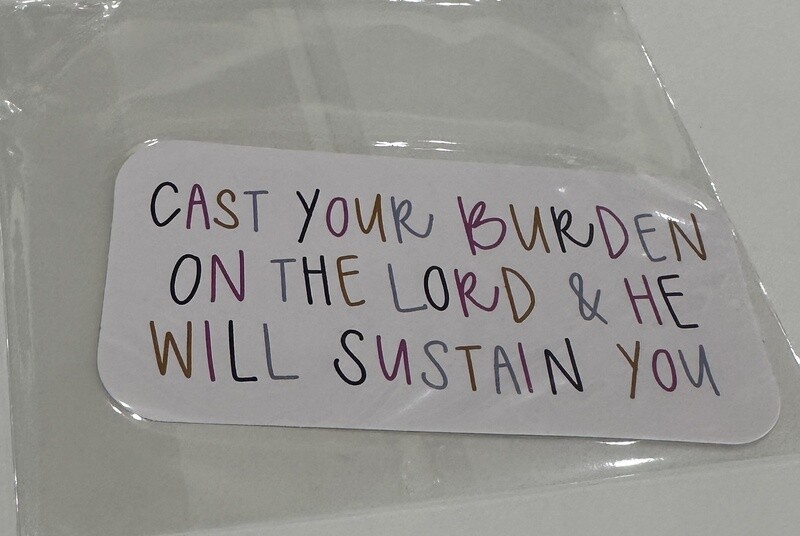 CAST YOUR BURDEN
ON THE LORD & HE
WILL SUSTAIN YOU